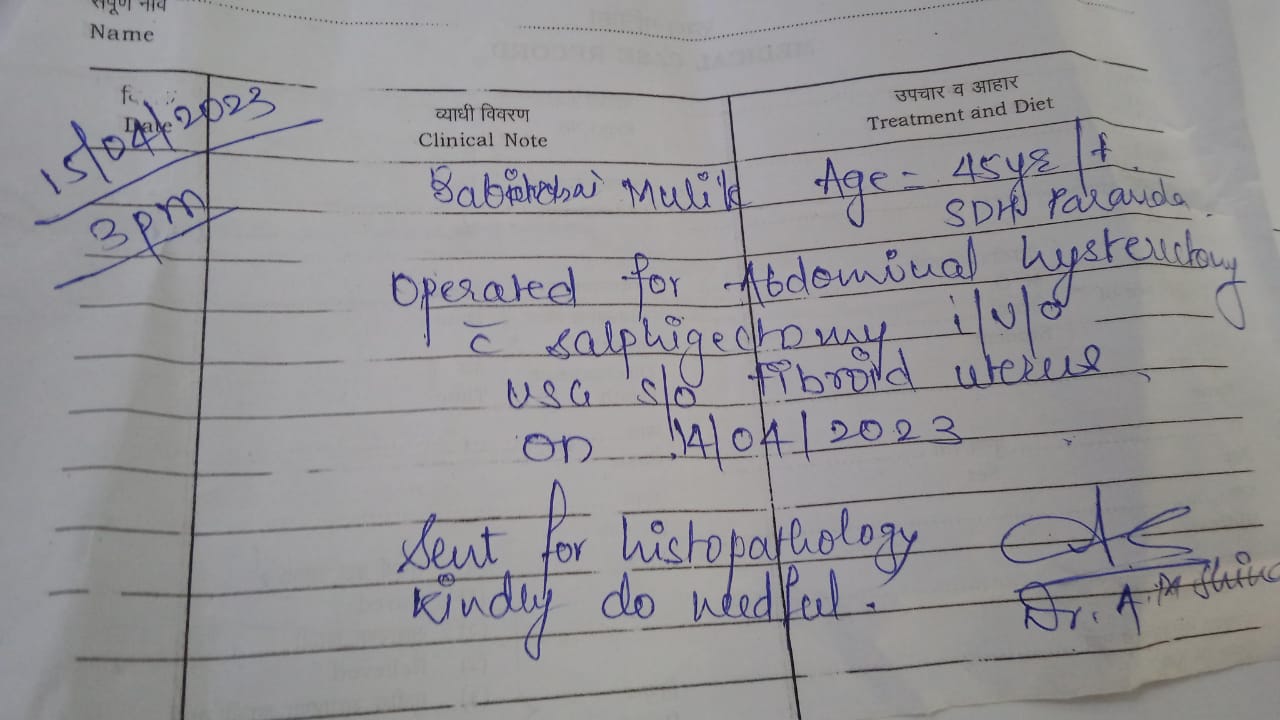 संपूर्ण नाव
Name
Date
15/04/2023
3 pm
व्याधी विवरण
Clinical Note
उपचार व आहार
Treatment and Diet
Mulik Age = 45yrs / f
SDH Paranda
Operated for Abdominal hysterectomy
c̄ salphigectomy i/v/o
USG s/o fibroid uterus
on 14/04/2023
Sent for histopathology
Kindly do needful.
Dr. A